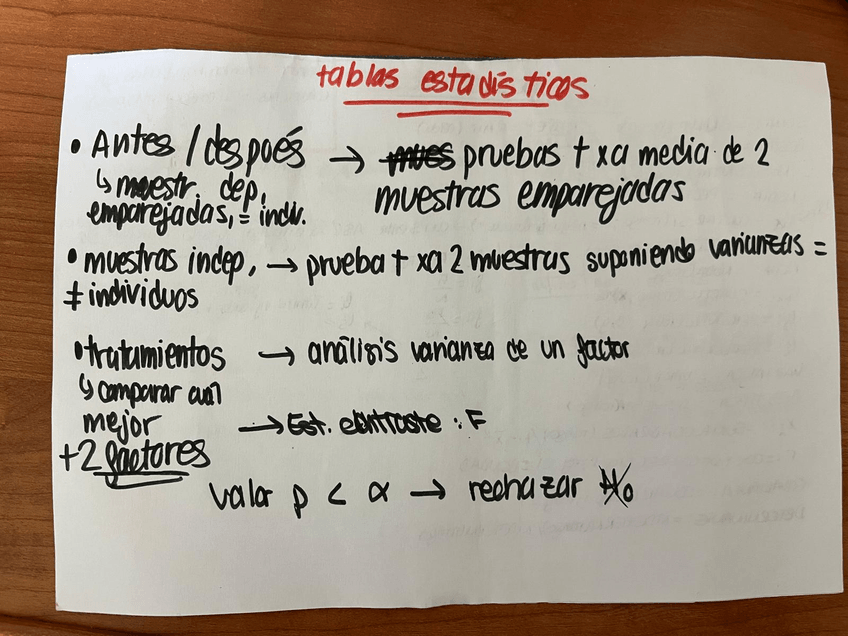 tablas estadísticas
• Antes / después → mues pruebas t xa media de 2
↳ muestr. dep. muestras emparejadas
emparejadas, = indiv.
• muestras indep, → prueba t xa 2 muestras suponiendo varianzas =
≠ individuos
• tratamientos → análisis varianza de un factor
↳ comparar cuál
mejor → Est. contraste : F
+2 factores
valor p < α → rechazar H₀